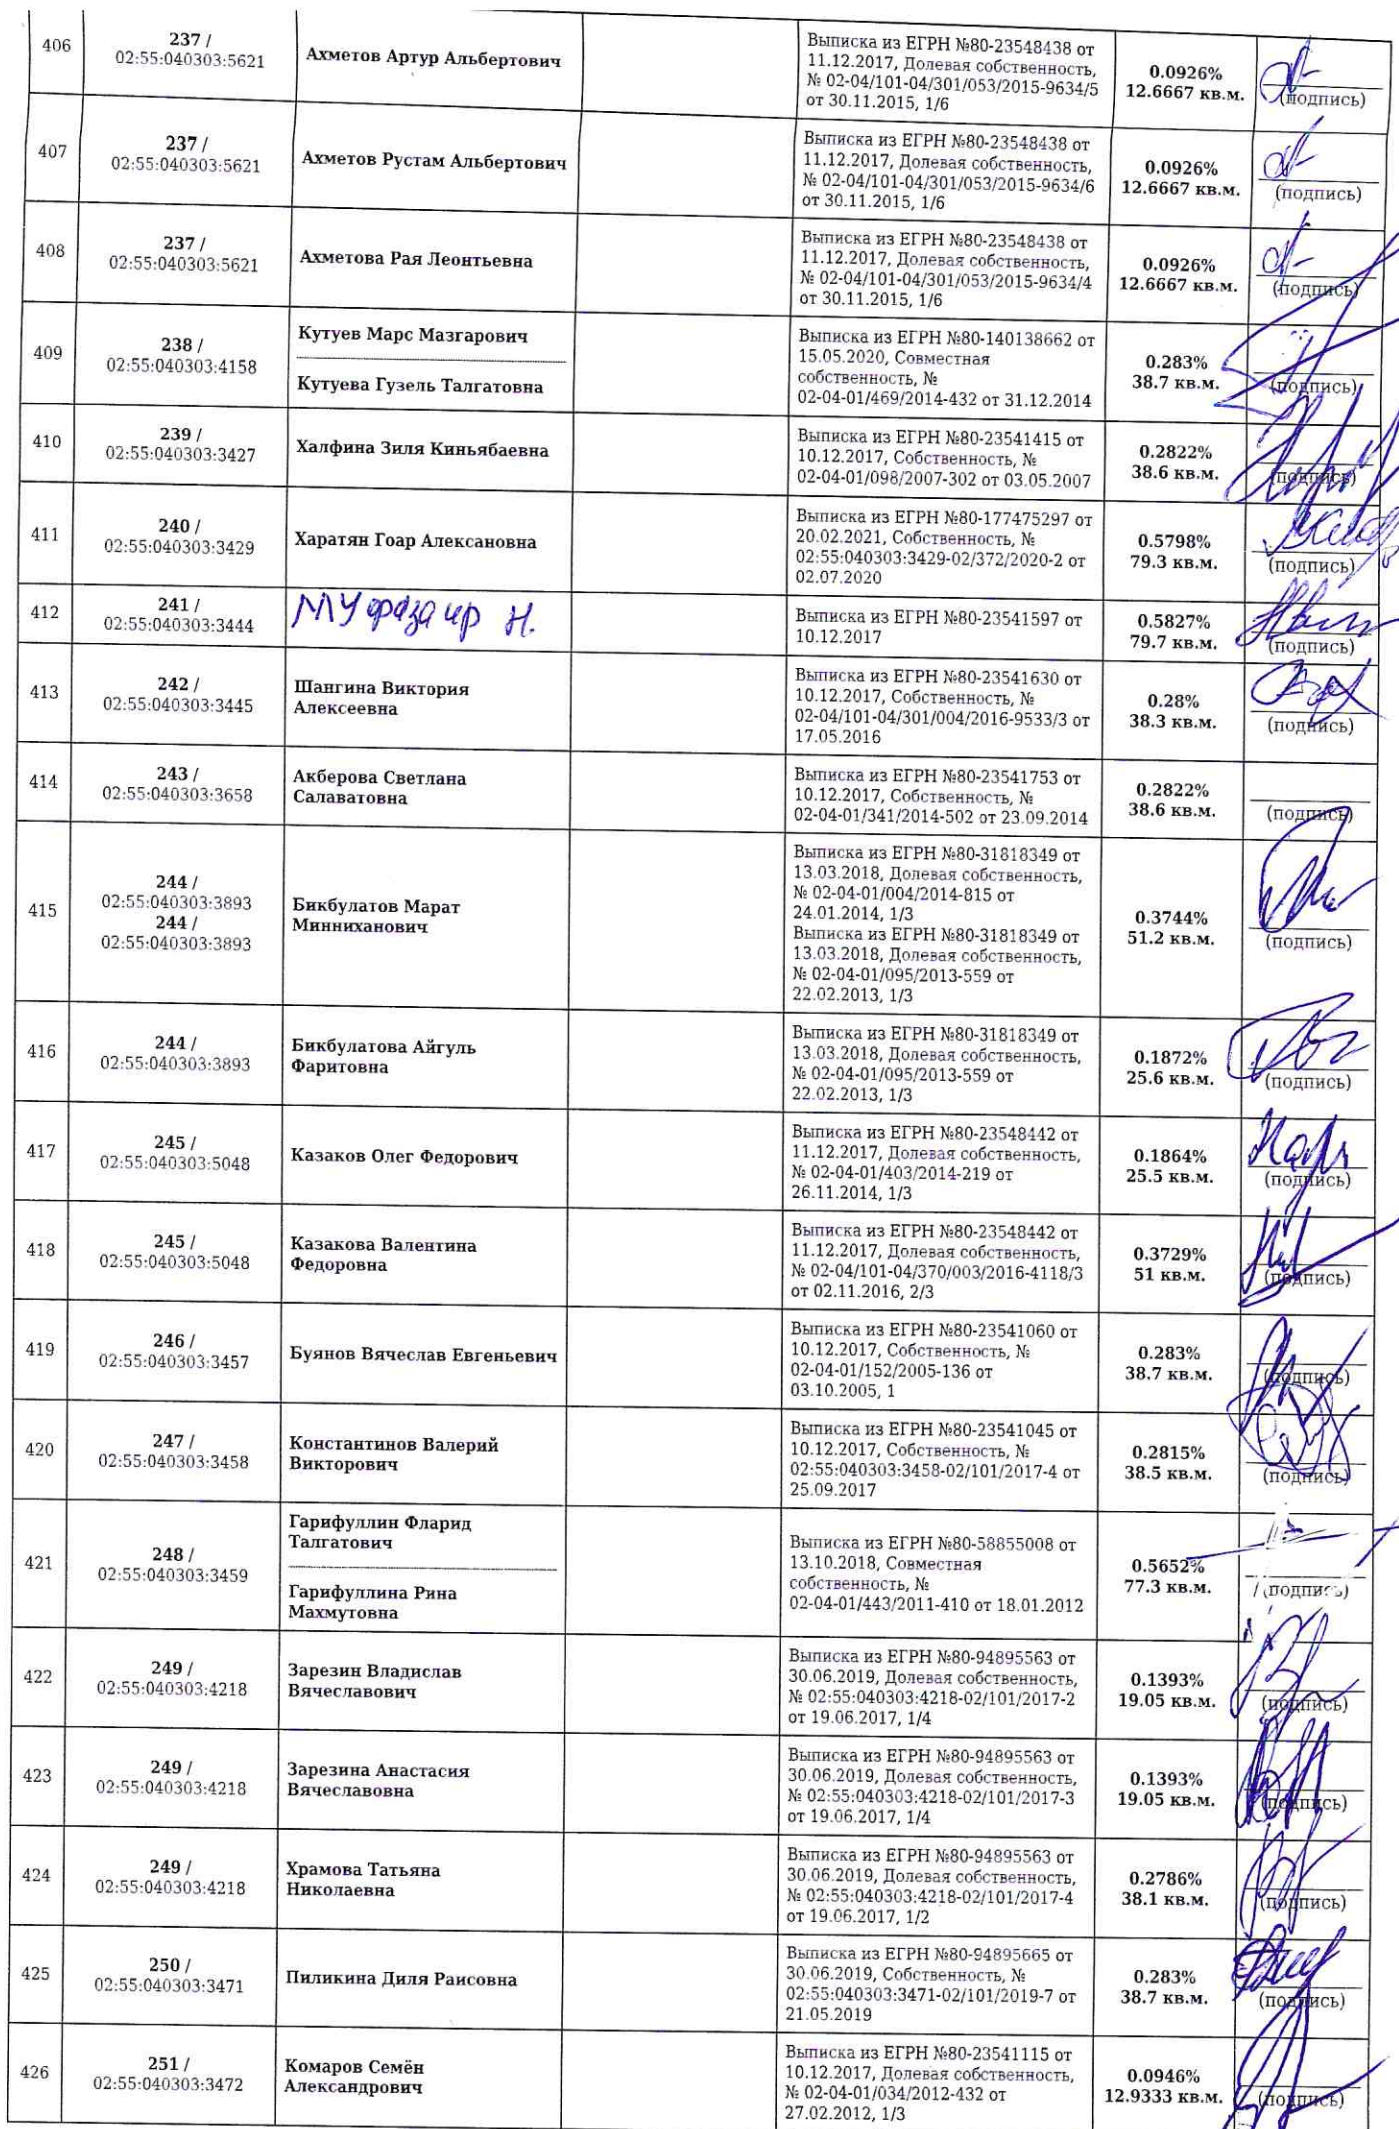 406
237 /
02:55:040303:5621
Ахметов Артур Альбертович
Выписка из ЕГРН №80-23548438 от
11.12.2017, Долевая собственность,
№ 02-04/101-04/301/053/2015-9634/5
от 30.11.2015, 1/6
0.0926%
12.6667 кв.м.
(подпись)
407
237 /
02:55:040303:5621
Ахметов Рустам Альбертович
Выписка из ЕГРН №80-23548438 от
11.12.2017, Долевая собственность,
№ 02-04/101-04/301/053/2015-9634/6
от 30.11.2015, 1/6
0.0926%
12.6667 кв.м.
(подпись)
408
237 /
02:55:040303:5621
Ахметова Рая Леонтьевна
Выписка из ЕГРН №80-23548438 от
11.12.2017, Долевая собственность,
№ 02-04/101-04/301/053/2015-9634/4
от 30.11.2015, 1/6
0.0926%
12.6667 кв.м.
(подпись)
409
238 /
02:55:040303:4158
Кутуев Марс Мазгарович
Кутуева Гузель Талгатовна
Выписка из ЕГРН №80-140138662 от
15.05.2020, Совместная
собственность, №
02-04-01/469/2014-432 от 31.12.2014
0.283%
38.7 кв.м.
(подпись)
410
239 /
02:55:040303:3427
Халфина Зиля Киньябаевна
Выписка из ЕГРН №80-23541415 от
10.12.2017, Собственность, №
02-04-01/098/2007-302 от 03.05.2007
0.2822%
38.6 кв.м.
(подпись)
411
240 /
02:55:040303:3429
Харатян Гоар Алексановна
Выписка из ЕГРН №80-177475297 от
20.02.2021, Собственность, №
02:55:040303:3429-02/372/2020-2 от
02.07.2020
0.5798%
79.3 кв.м.
(подпись)
412
241 /
02:55:040303:3444
Н.
Выписка из ЕГРН №80-23541597 от
10.12.2017
0.5827%
79.7 кв.м.
(подпись)
413
242 /
02:55:040303:3445
Шангина Виктория
Алексеевна
Выписка из ЕГРН №80-23541630 от
10.12.2017, Собственность, №
02-04/101-04/301/004/2016-9533/3 от
17.05.2016
0.28%
38.3 кв.м.
(подпись)
414
243 /
02:55:040303:3658
Акберова Светлана
Салаватовна
Выписка из ЕГРН №80-23541753 от
10.12.2017, Собственность, №
02-04-01/341/2014-502 от 23.09.2014
0.2822%
38.6 кв.м.
(подпись)
415
244 /
02:55:040303:3893
244 /
02:55:040303:3893
Бикбулатов Марат
Минниханович
Выписка из ЕГРН №80-31818349 от
13.03.2018, Долевая собственность,
№ 02-04-01/004/2014-815 от
24.01.2014, 1/3
Выписка из ЕГРН №80-31818349 от
13.03.2018, Долевая собственность,
№ 02-04-01/095/2013-559 от
22.02.2013, 1/3
0.3744%
51.2 кв.м.
(подпись)
416
244 /
02:55:040303:3893
Бикбулатова Айгуль
Фаритовна
Выписка из ЕГРН №80-31818349 от
13.03.2018, Долевая собственность,
№ 02-04-01/095/2013-559 от
22.02.2013, 1/3
0.1872%
25.6 кв.м.
(подпись)
417
245 /
02:55:040303:5048
Казаков Олег Федорович
Выписка из ЕГРН №80-23548442 от
11.12.2017, Долевая собственность,
№ 02-04-01/403/2014-219 от
26.11.2014, 1/3
0.1864%
25.5 кв.м.
(подпись)
418
245 /
02:55:040303:5048
Казакова Валентина
Федоровна
Выписка из ЕГРН №80-23548442 от
11.12.2017, Долевая собственность,
№ 02-04/101-04/370/003/2016-4118/3
от 02.11.2016, 2/3
0.3729%
51 кв.м.
(подпись)
419
246 /
02:55:040303:3457
Буянов Вячеслав Евгеньевич
Выписка из ЕГРН №80-23541060 от
10.12.2017, Собственность, №
02-04-01/152/2005-136 от
03.10.2005, 1
0.283%
38.7 кв.м.
(подпись)
420
247 /
02:55:040303:3458
Константинов Валерий
Викторович
Выписка из ЕГРН №80-23541045 от
10.12.2017, Собственность, №
02:55:040303:3458-02/101/2017-4 от
25.09.2017
0.2815%
38.5 кв.м.
(подпись)
421
248 /
02:55:040303:3459
Гарифуллин Фларид
Талгатович
Гарифуллина Рина
Махмутовна
Выписка из ЕГРН №80-58855008 от
13.10.2018, Совместная
собственность, №
02-04-01/443/2011-410 от 18.01.2012
0.5652%
77.3 кв.м.
(подпись)
422
249 /
02:55:040303:4218
Зарезин Владислав
Вячеславович
Выписка из ЕГРН №80-94895563 от
30.06.2019, Долевая собственность,
№ 02:55:040303:4218-02/101/2017-2
от 19.06.2017, 1/4
0.1393%
19.05 кв.м.
(подпись)
423
249 /
02:55:040303:4218
Зарезина Анастасия
Вячеславовна
Выписка из ЕГРН №80-94895563 от
30.06.2019, Долевая собственность,
№ 02:55:040303:4218-02/101/2017-3
от 19.06.2017, 1/4
0.1393%
19.05 кв.м.
(подпись)
424
249 /
02:55:040303:4218
Храмова Татьяна
Николаевна
Выписка из ЕГРН №80-94895563 от
30.06.2019, Долевая собственность,
№ 02:55:040303:4218-02/101/2017-4
от 19.06.2017, 1/2
0.2786%
38.1 кв.м.
(подпись)
425
250 /
02:55:040303:3471
Пиликина Диля Раисовна
Выписка из ЕГРН №80-94895665 от
30.06.2019, Собственность, №
02:55:040303:3471-02/101/2019-7 от
21.05.2019
0.283%
38.7 кв.м.
(подпись)
426
251 /
02:55:040303:3472
Комаров Семён
Александрович
Выписка из ЕГРН №80-23541115 от
10.12.2017, Долевая собственность,
№ 02-04-01/034/2012-432 от
27.02.2012, 1/3
0.0946%
12.9333 кв.м.
(подпись)